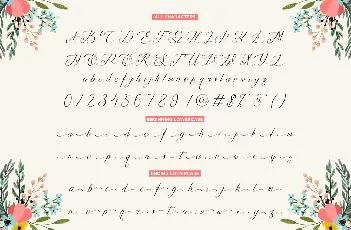 ALL CHARACTERS
A B C D E F G H I J K L M
N O P Q R S T U V W X Y Z
a b c d e f g h i j k l m n o p q r s t u v w x y z
0 1 2 3 4 5 6 7 8 9 ! @ # $ % & ( )
BEGINNING LOWERCASE
a b c d e f g h i j k l m
n o p q r s t u v w x y z
ENDING LOWERCASE
a b c d e f g h i j k l m
n o p q r s t u v w x y z